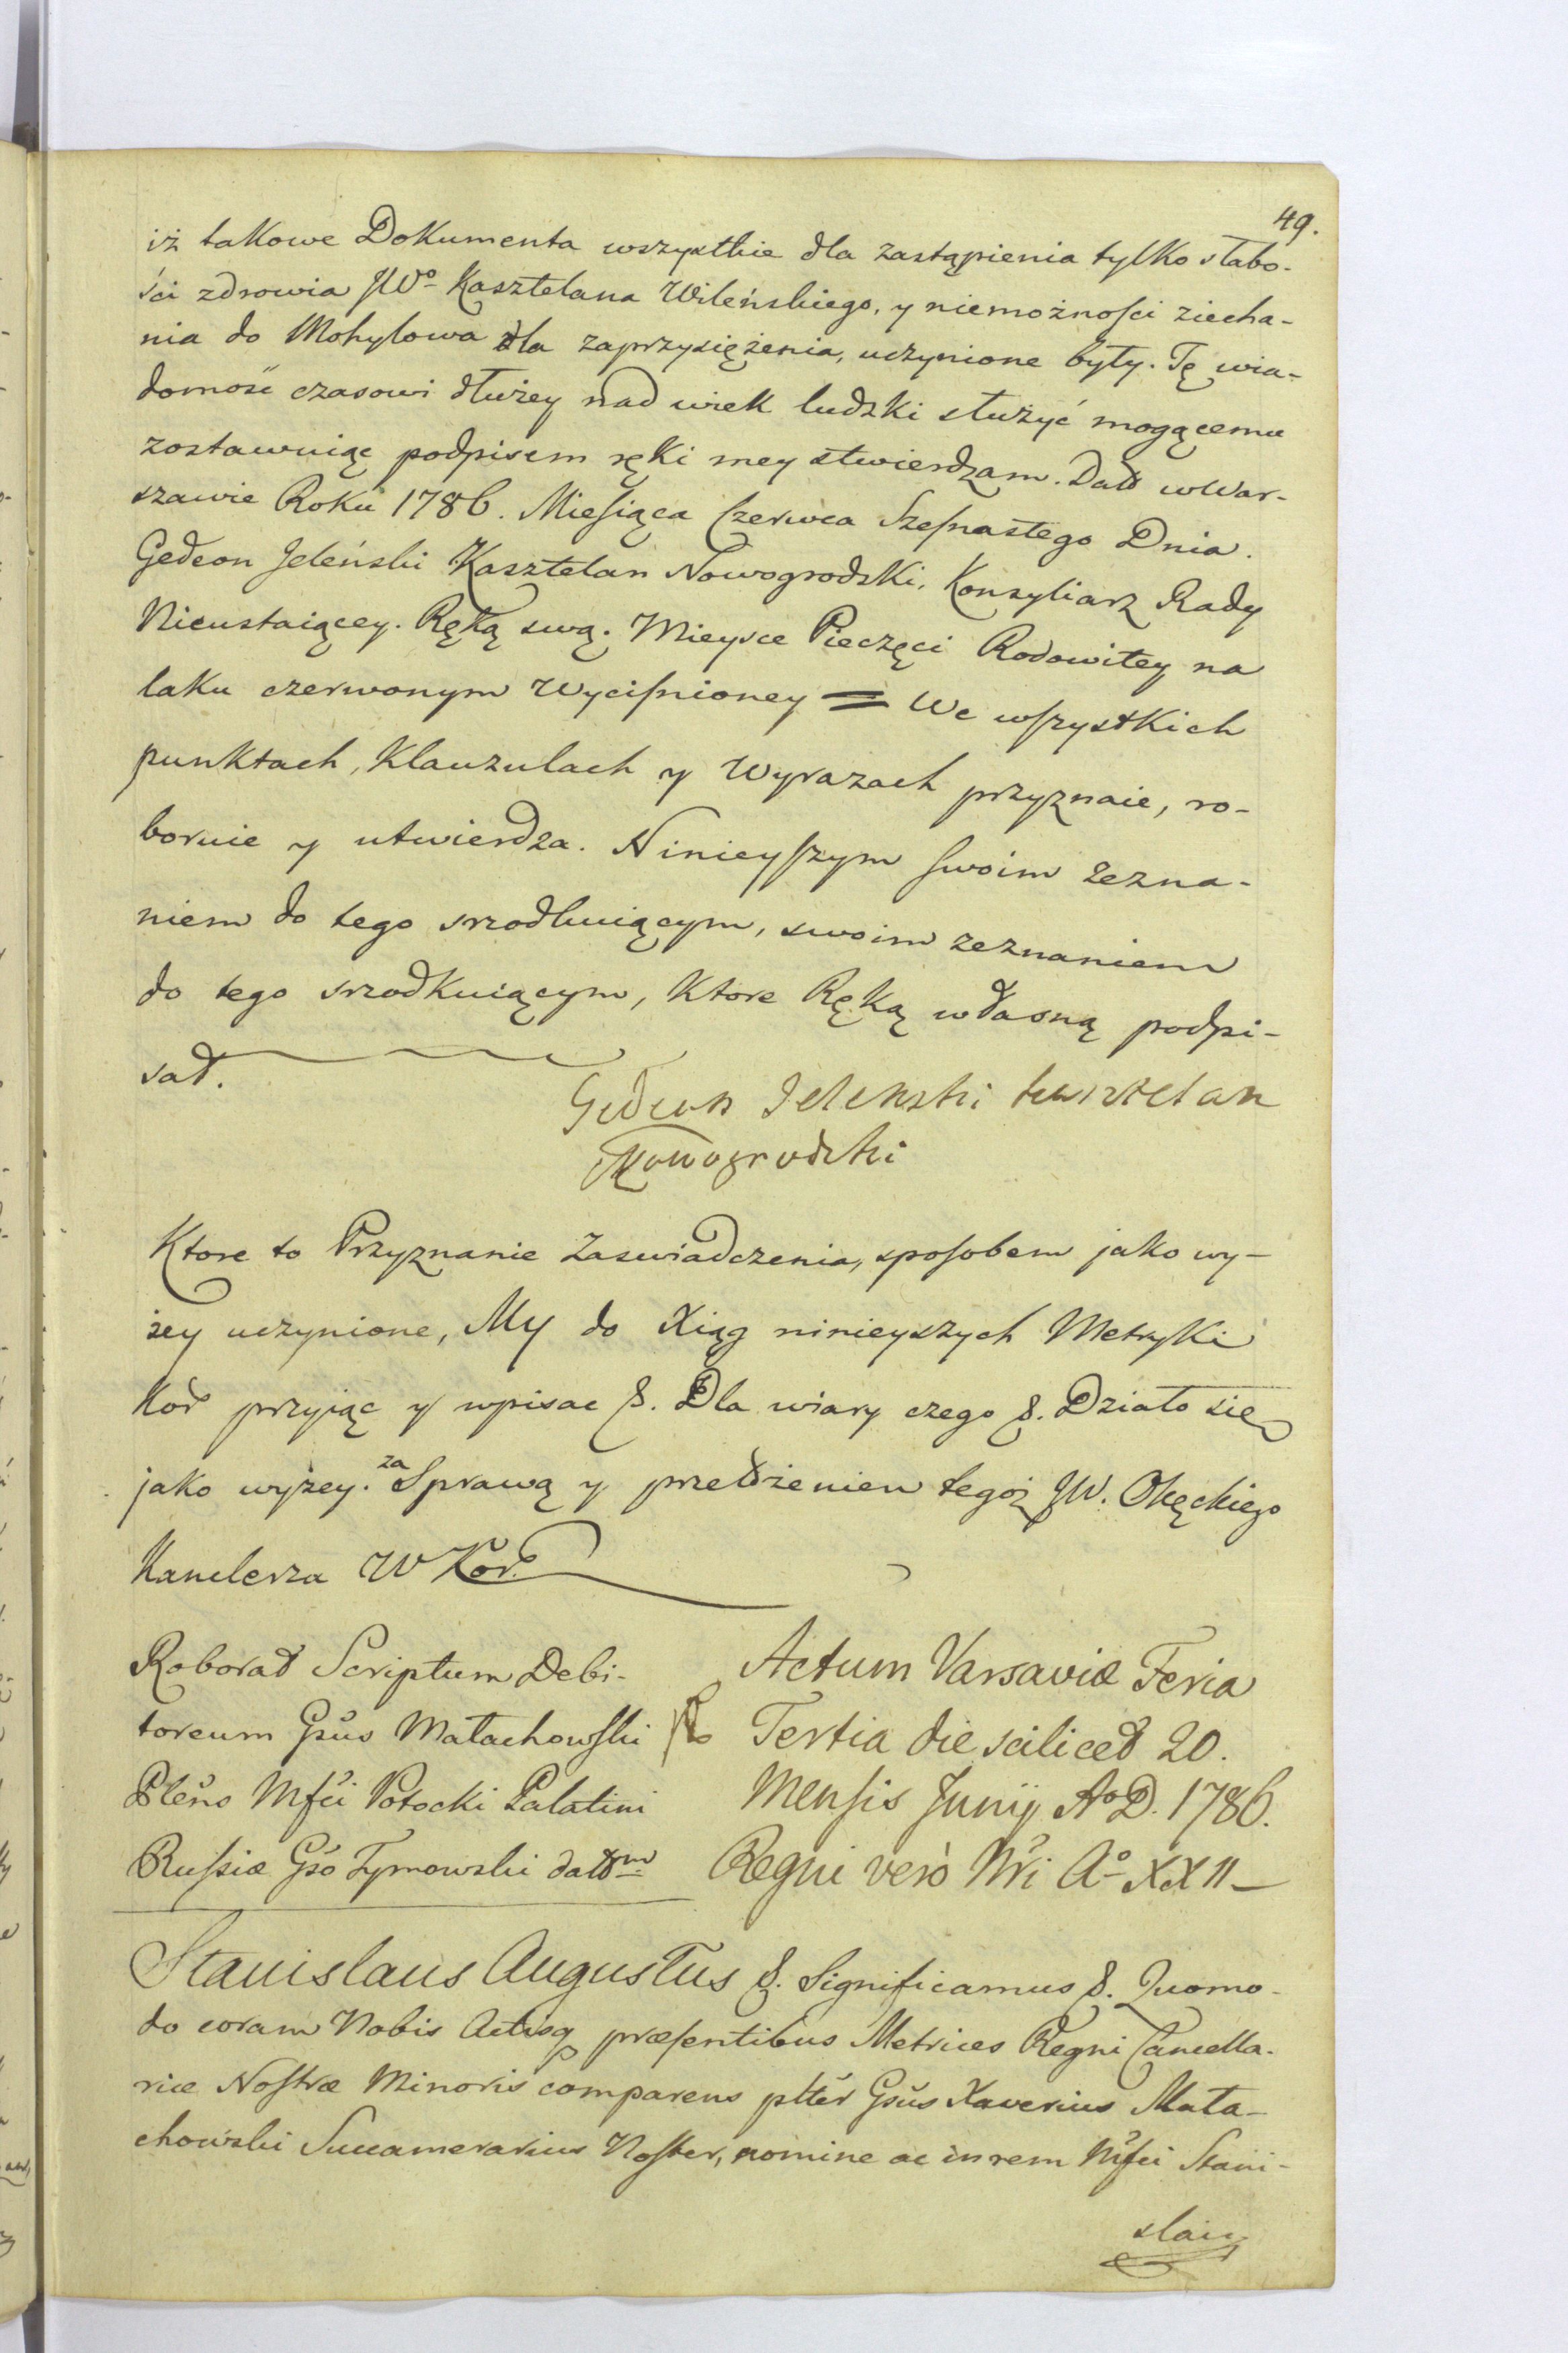 49.
iż takowe Dokumenta wszystkie dla zastąpienia tylko słabo-
ści zdrowia JWº Kasztelana Wileńskiego, y niemożności ziecha-
nia do Mohylowa dla zaprzysiężenia, uczynione były. Tę wia-
domość czasowi dłużey nad wiek ludzki służyć mogącemu
zostawuiąc podpisem ręki mey stwierdzam. Datt w War-
szawie Roku 1786. Miesiąca Czerwca Szesnastego Dnia.
Gedeon Jeleński Kasztelan Nowogrodzki, Konsyliarz Rady
Nieustaiącey. Ręką swą. Mieysce Pieczęci Rodowitey na
laku czerwonym wycisnioney = We wszystkich
punktach, Klauzulach y Wyrazach przyznaie, ro-
boruie y utwierdza. Ninieyszym swoim zezna-
niem do tego srzodkuiącym, swoim zeznaniem
do tego srzodkuiącym, Ktore Ręką własną podpi-
sał.
Gedeon Jelenski kasztelan
Nowogrodzki
Ktore to Przyznanie Zaswiadczenia, sposobem jako wy-
żey uczynione, My do Xiąg ninieyszych Metryki
Kor przyjąc y wpisac &. Dla wiary czego &. Działo się
jako wyżey. za Sprawą y przełżeniem tegoż JW. Okęckiego
Kanclerza W Kor.
Roborat Scriptum Debi-
toreum Gsus Małachowski
Plens Mfci Potocki Palatini
Russiæ Gso Tymowski datt m
Actum Varsaviæ Feria
Tertia die scilicet 20.
Mensis Junij Aº D. 1786.
Regni verò Nri Aº XXII
Stanislaus Augustus &. Significamus &. Quomo-
do coram Nobis Actisq præsentibus Metrices Regni Cancella-
riæ Nostræ Minoris comparens pltèr Gsus Xaverius Mała-
chowski Succamerarius Noster, nomine ac in rem Mfci Stani-
slai